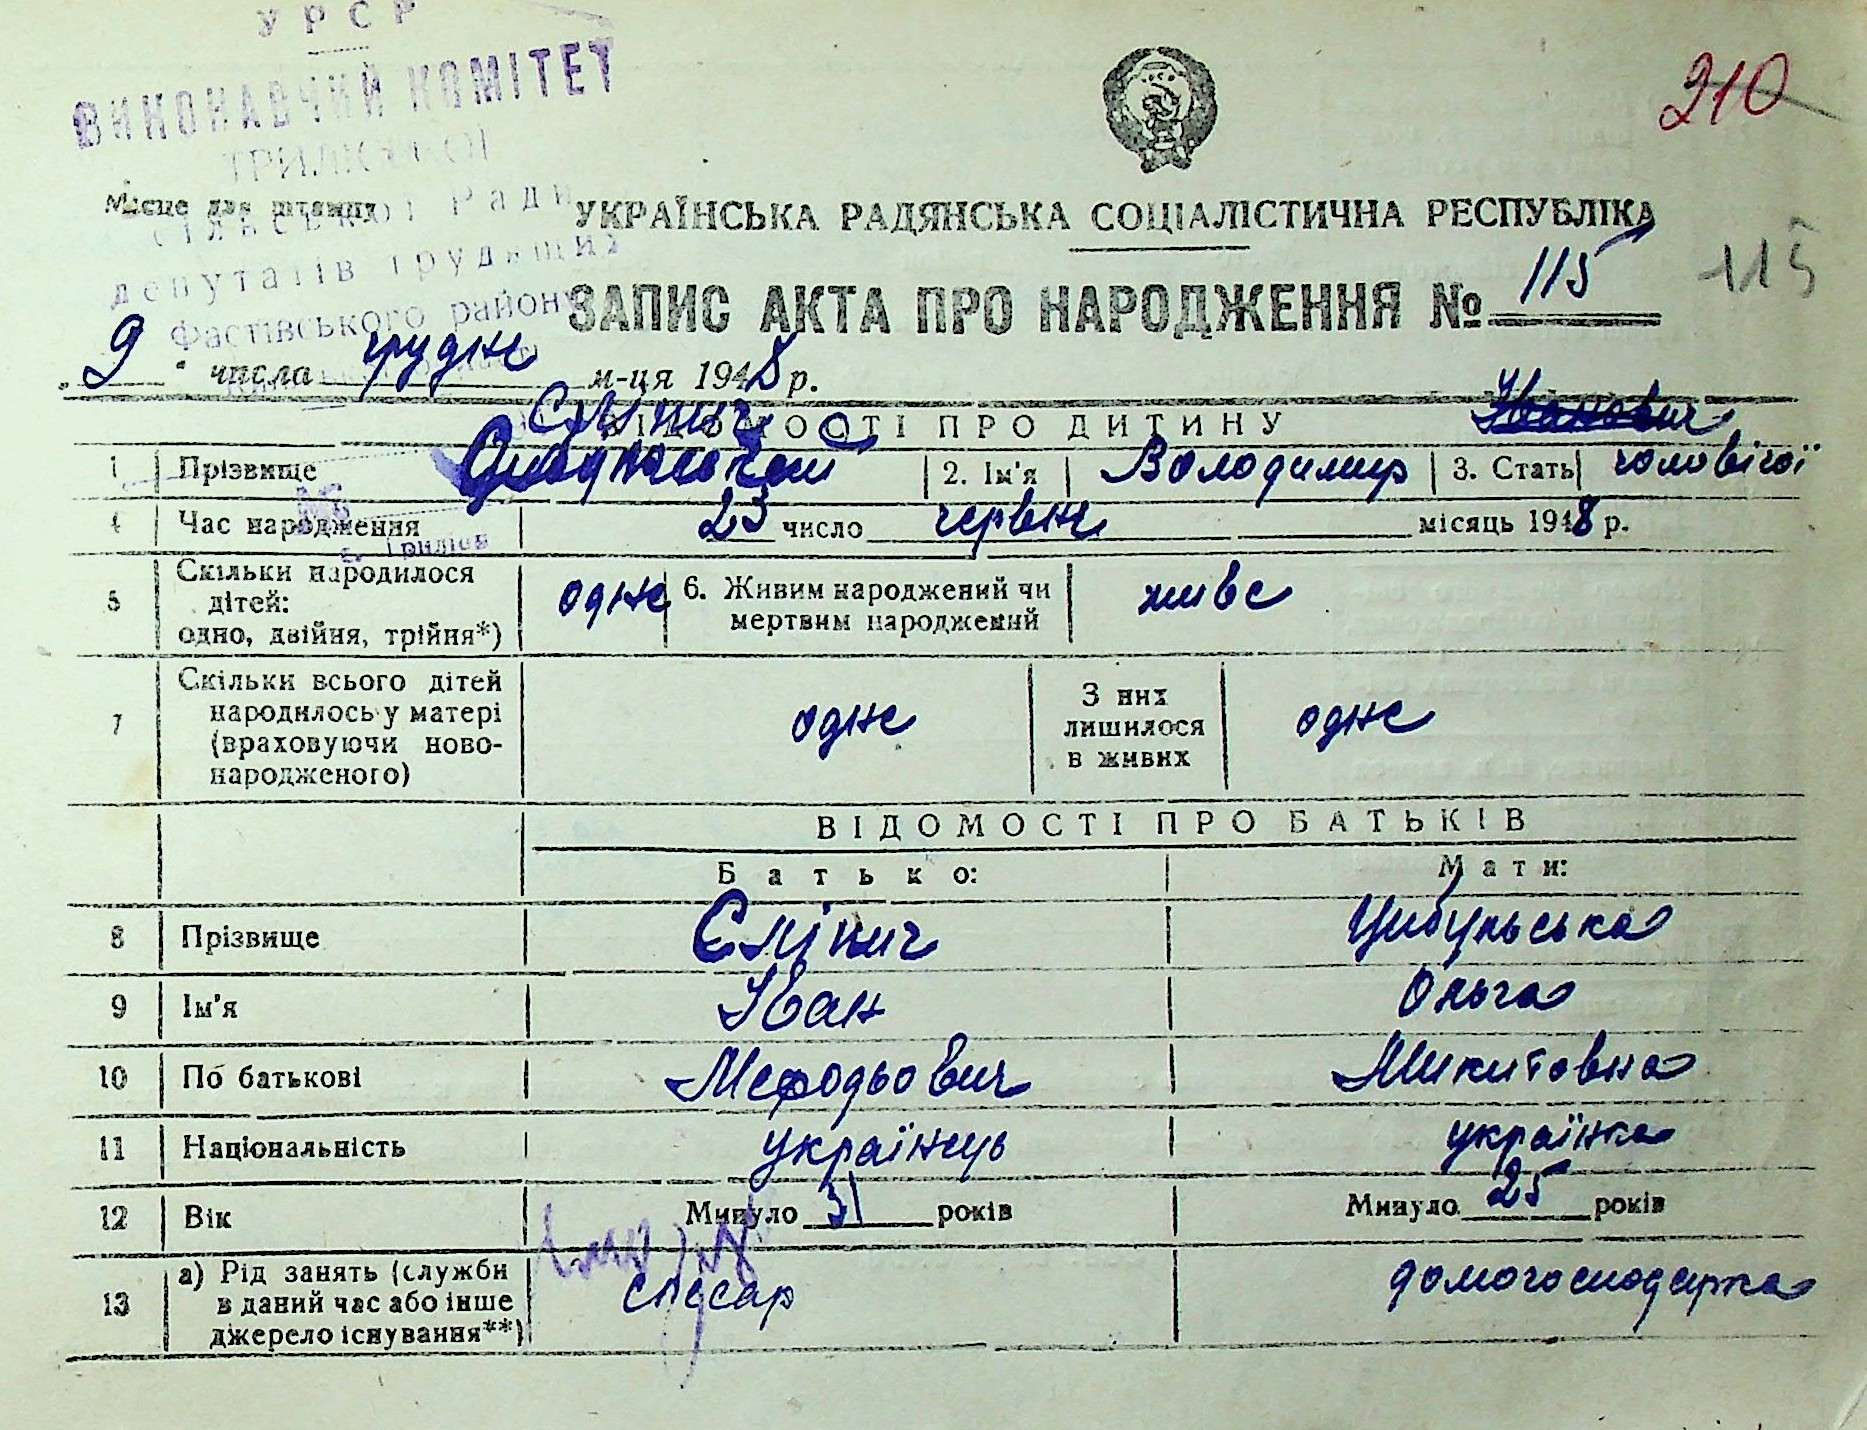 УРСР
ВИКОНАВЧИЙ КОМІТЕТ
ТРИЛІСЬКОЇ
Місце для штампу
сільської Ради
депутатів трудящих
Фастівського району
210
УКРАЇНСЬКА РАДЯНСЬКА СОЦІАЛІСТИЧНА РЕСПУБЛІКА
ЗАПИС АКТА ПРО НАРОДЖЕННЯ № 115
115
„ 9 " числа грудня м-ця 1948 р.
ВІДОМОСТІ ПРО ДИТИНУ
Єліпич Іванович
1 Прізвище 2. Ім'я Володимир 3. Стать чоловічої
4 Час народження 23 число червня місяць 1948 р.
с. Триліси
5 Скільки народилося дітей: одно, двійня, трійня*) одне 6. Живим народжений чи мертвим народжений живе
7 Скільки всього дітей народилось у матері (враховуючи новонародженого) одне З них лишилося в живих одне
ВІДОМОСТІ ПРО БАТЬКІВ
Батько: Мати:
8 Прізвище Єліпич Цибульська
9 Ім'я Іван Ольга
10 По батькові Мефодьович Микитовна
11 Національність українець українка
12 Вік Минуло 31 років Минуло 25 років
13 а) Рід занять (служби в даний час або інше джерело існування**) слюсар домогосподарка